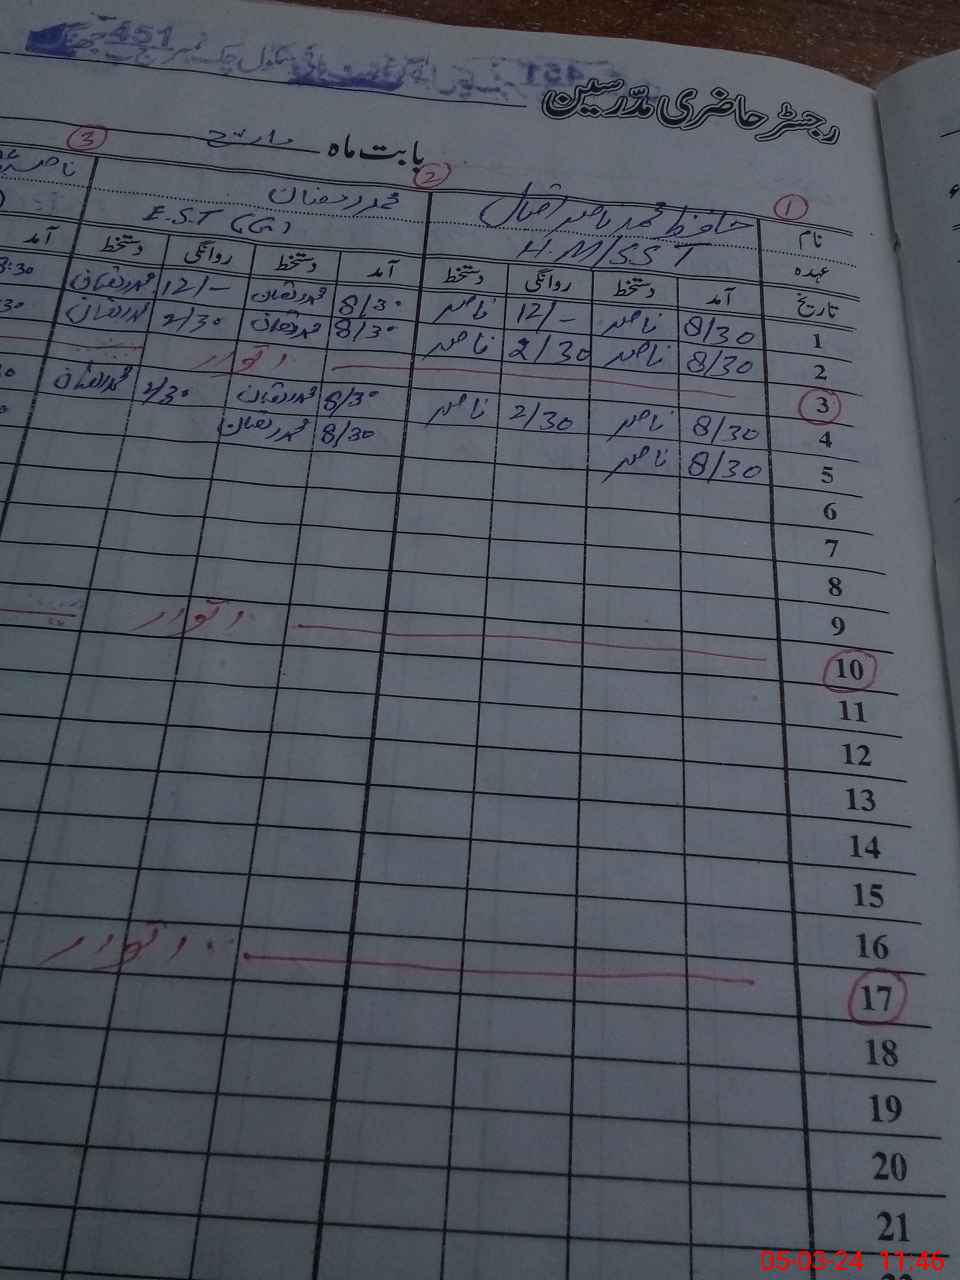 451
رجسٹر حاضری مدّرسین
بابت ماہ مارچ
① ② ③
نام حافظ محمد ناصر اقبال محمد رمضان
عہدہ H.M/S.S.T E.S.T (G)
تاریخ آمد دستخط روانگی دستخط آمد دستخط روانگی دستخط آمد
1 8/30 ناصر 12/- ناصر 8/30 محمد رمضان 12/- محمد رمضان 8:30
2 8/30 ناصر 2/30 ناصر 8/30 محمد رمضان 2/30 محمد رمضان
3 اتوار
4 8/30 ناصر 2/30 ناصر 8/30 محمد رمضان 2/30 محمد رمضان
5 8/30 ناصر 8/30 محمد رمضان
6
7
8
9
10 اتوار
11
12
13
14
15
16
17 اتوار
18
19
20
21
05-03-24 11:46